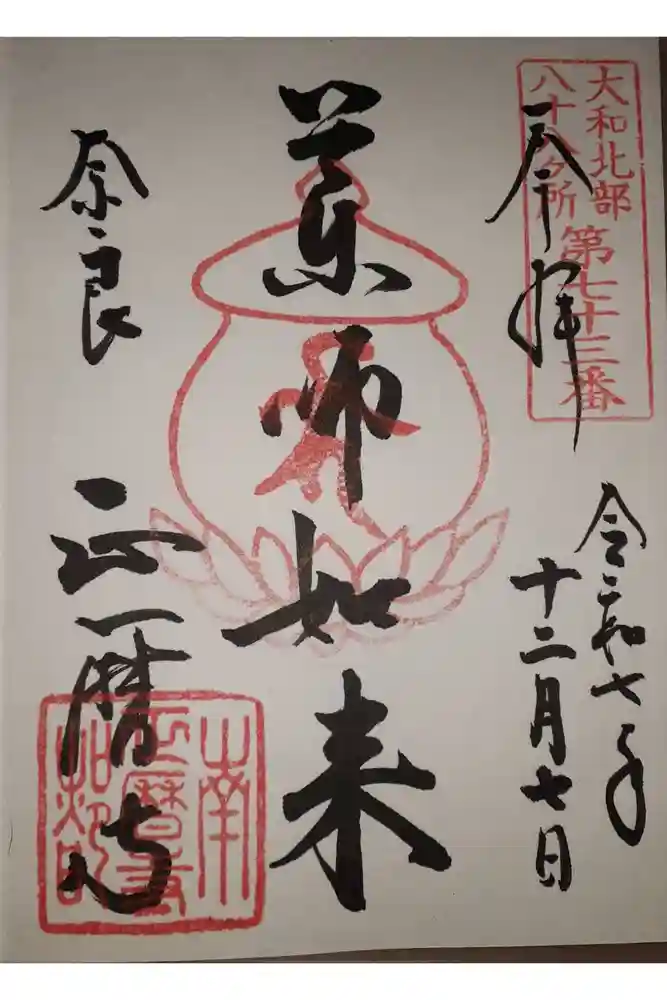 大和北部
八十八ヶ所 第七十三番
奉拝
令和七年
十二月七日
薬師如来
奈良 正暦寺